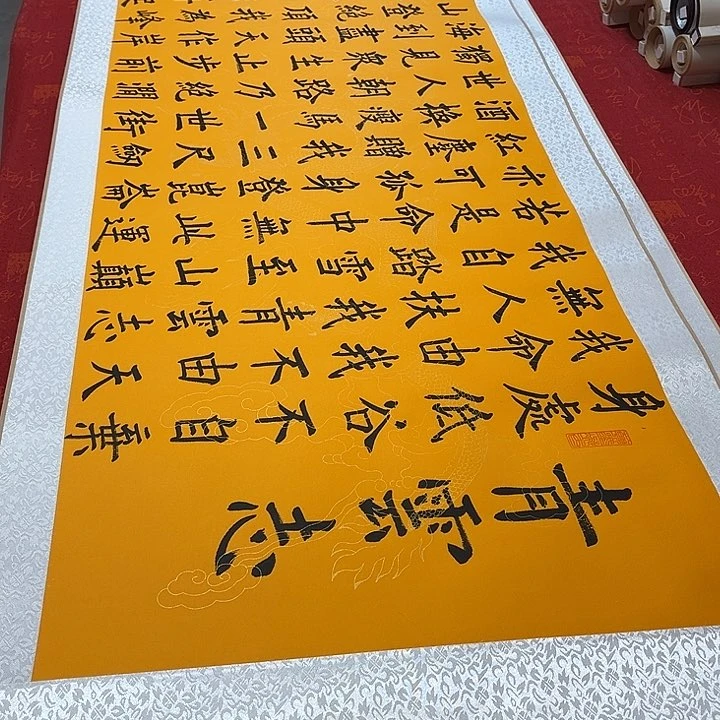 青雲志
身處低谷不自棄
我命由我不由天
無人扶我青雲志
我自踏雪至山巔
若是命中無此運
亦可孤身登崑崙
紅塵贈我三尺劍
酒換瘦馬一世街
世人朝路乃絕澗
獨見眾生止步前
海到盡頭天作岸
山登絕頂我為峰